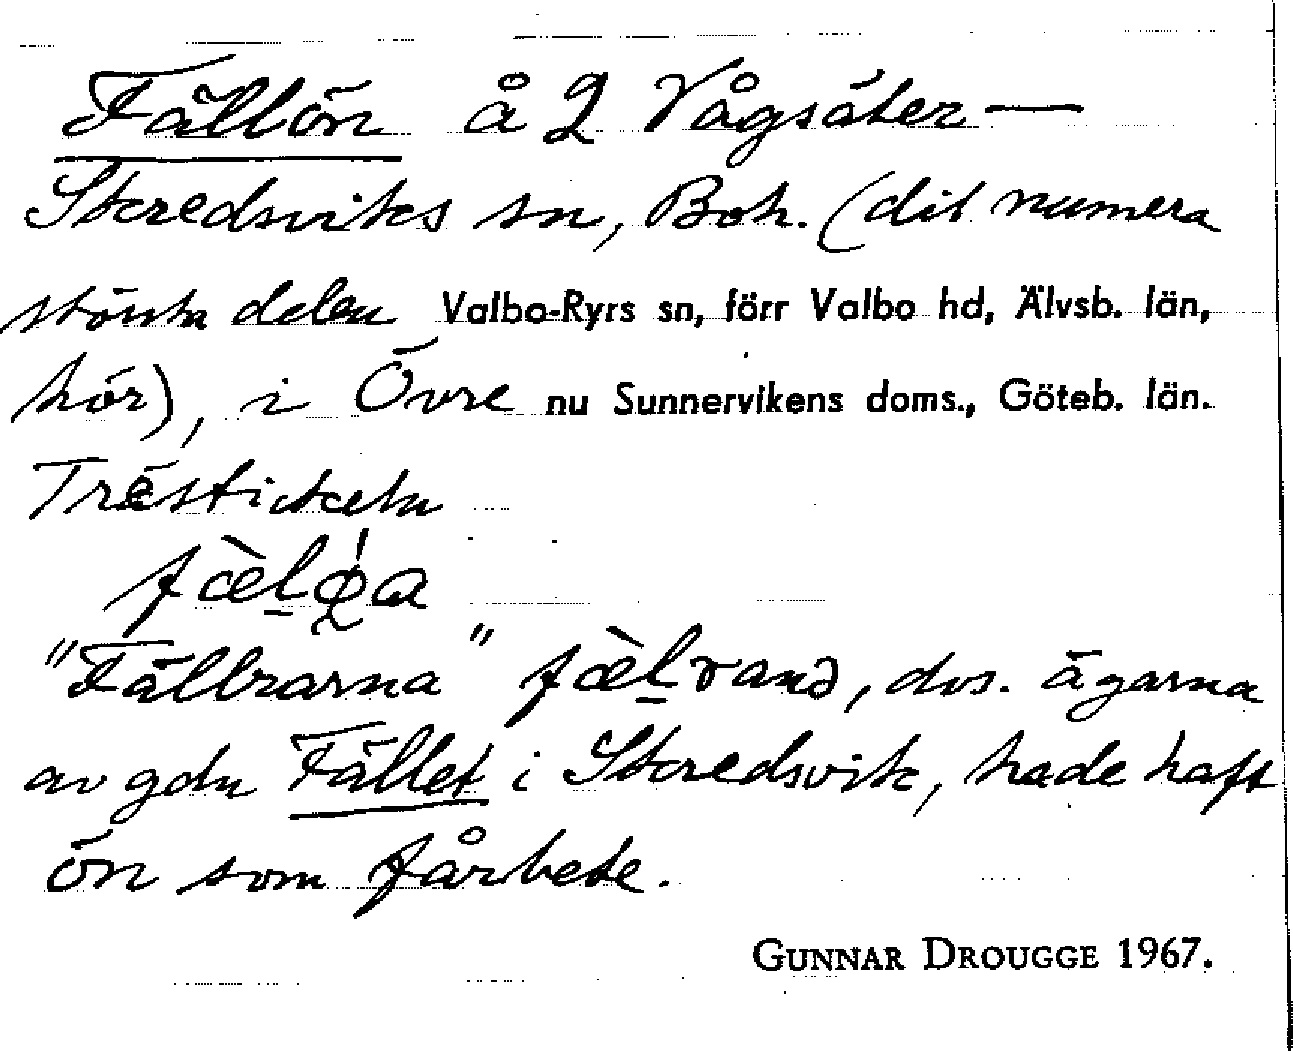 Fällön å 2 Vågsäter —
Skredsviks sn, Boh. (dit numera
största delen Valbo-Ryrs sn, förr Valbo hd, Älvsb. län,
hör), i Övre nu Sunnervikens doms., Göteb. län.
Trästickeln
fæ̀lø̨a
"Fällrarna" fæ̀lranə, dvs. ägarna
av gdn Fället i Skredsvik, hade haft
ön som fårbete.
GUNNAR DROUGGE 1967.